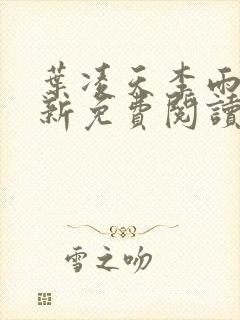 葉凌天李雨
新免費閱讀
雪之吻